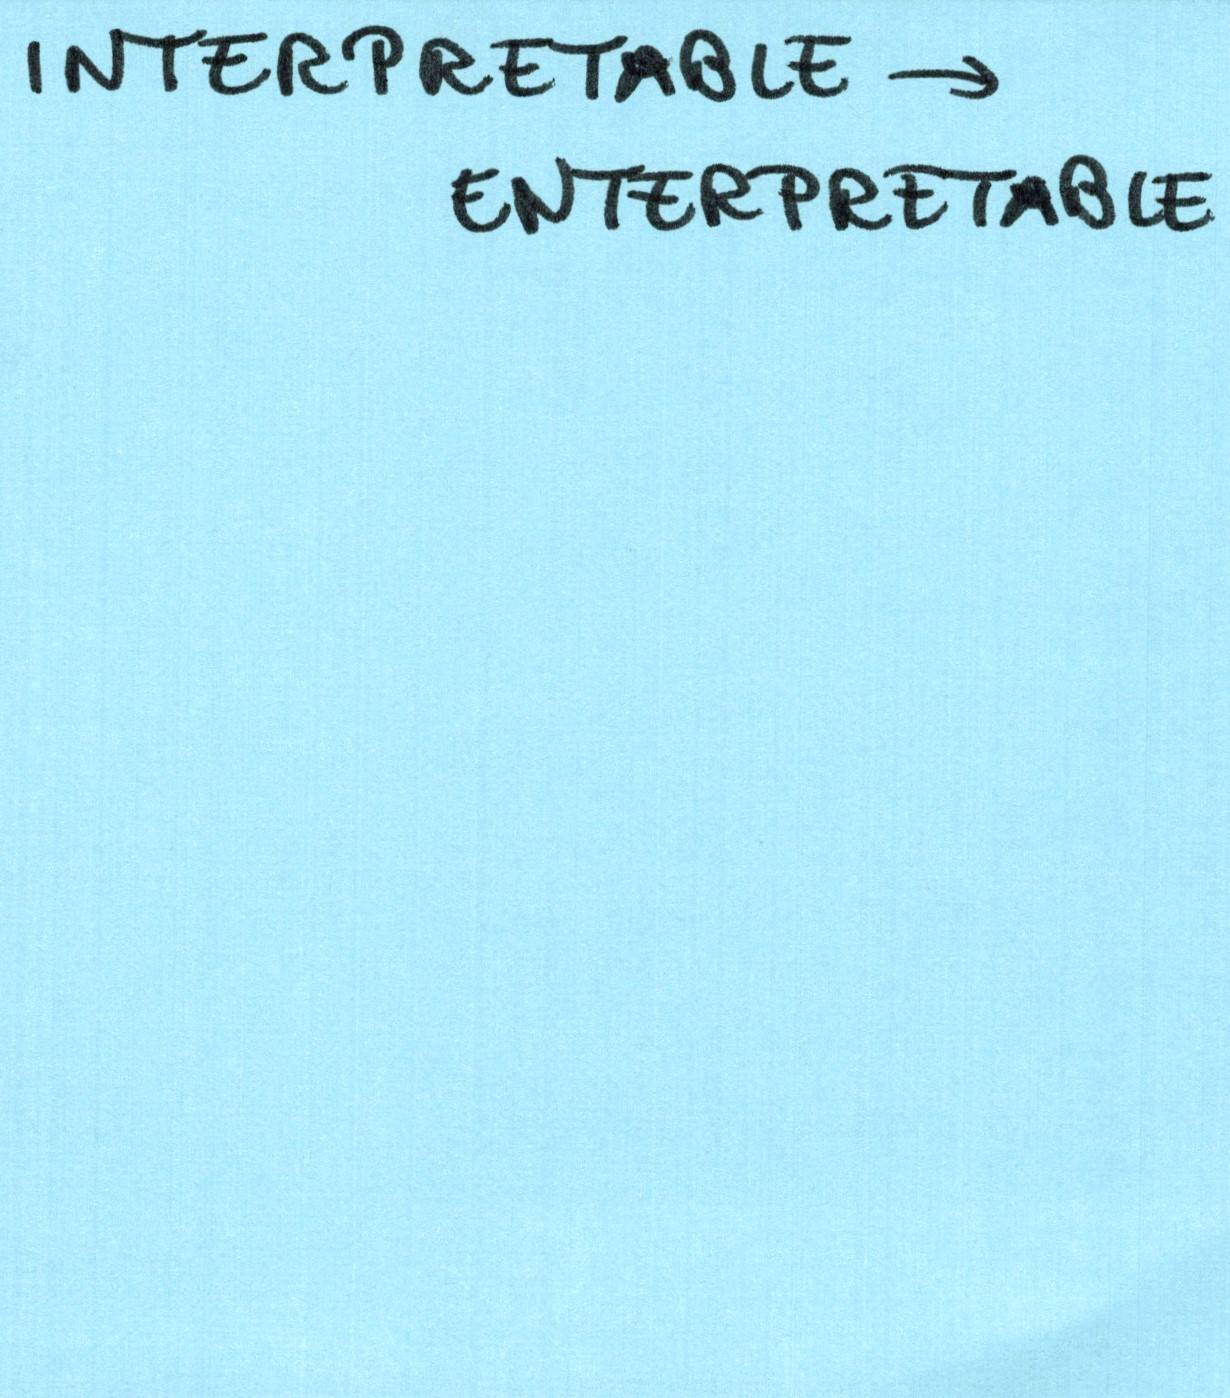 INTERPRETABLE →
ENTERPRETABLE